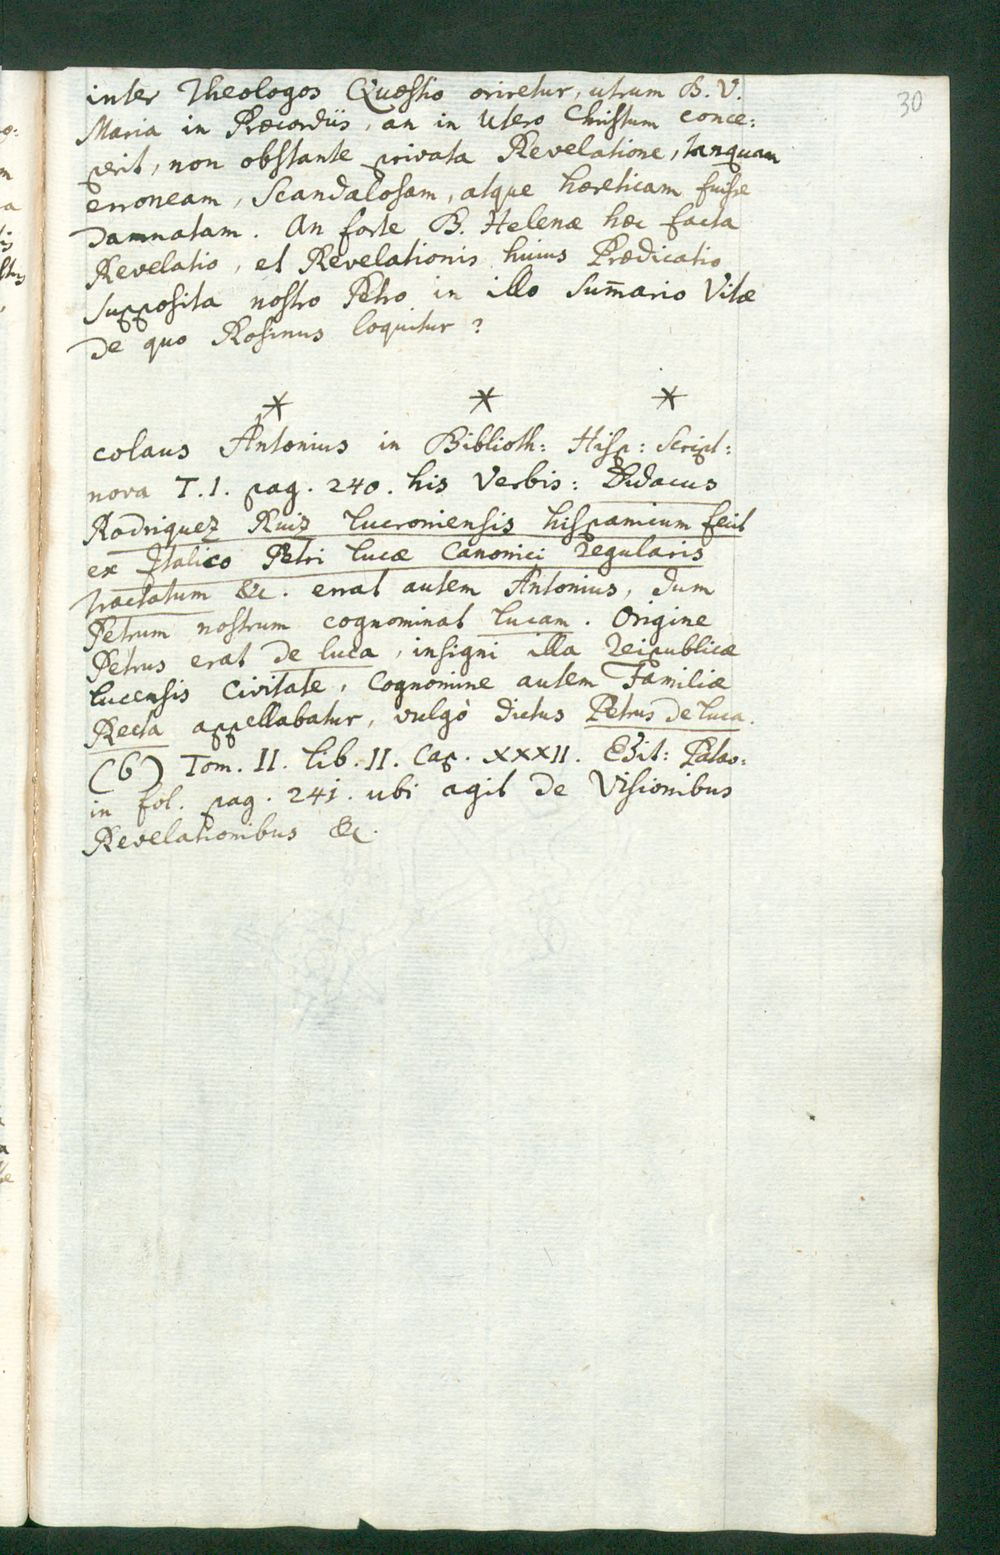 30
inter Theologos Quæstio oriretur, utrum B. V.
Maria in Præcordiis, an in Utero Christum conce:
perit, non obstante privata Revelatione, tanquam
erroneam, Scandalosam, atque hæreticam fuisse
damnatam. An forte B. Helenæ hæc facta
Revelatio, et Revelationis huius Prædicatio
supposita nostro Petro in illo Sum̄ario Vitæ
de quo Rosinus loquitur?
* * *
colaus Antonius in Biblioth: Hisp: Script:
nova T. I. pag. 240. his Verbis: Didacus
Rodriguez Ruiz Lucroniensis hispanicum fecit
ex Italico Petri Lucæ Canonici Regularis
tractatum &c. errat autem Antonius, dum
Petrum nostrum cognominat Lucam. Origine
Petrus erat de Luca, insigni illa Reipublicæ
Lucensis Civitate, Cognomine autem Familiæ
Recta appellabatur, vulgò dictus Petrus de Luca.
(b) Tom. II. lib. II. Cap. XXXII. Edit: Patav:
in fol. pag. 241. ubi agit de Visionibus
Revelationibus &c.